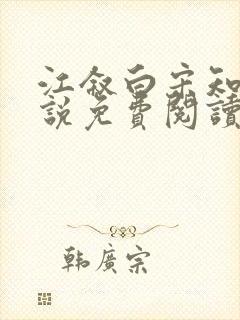 江叙白宋知
說免費閱讀
韓廣宗